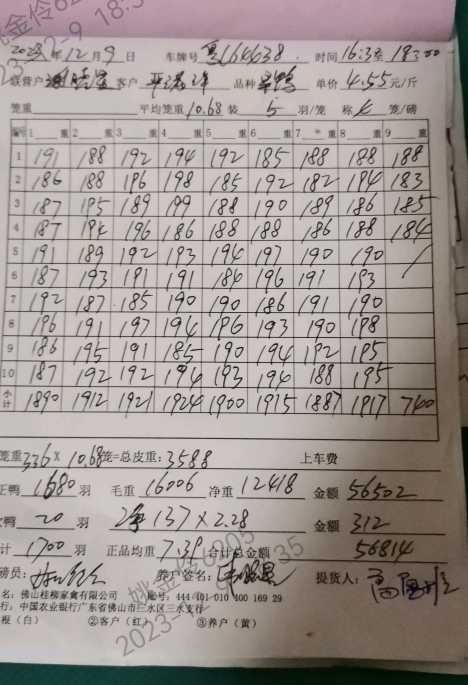 2023年12月9日 车牌号 粤 164638 时间 16:3至18:00
客户 品种 鸭 单价 4.55元/斤
笼重 平均笼重10.68装5羽/笼 称 笼/磅
1 重 2 重 3 重 4 重 5 重 6 重 7 重 8 重 9 重
1 191 188 192 194 192 185 188 188 188
2 186 188 196 198 185 192 182 194 183
3 187 195 189 199 188 190 189 186 185
4 187 196 186 188 188 186 188 184
5 191 189 192 193 194 197 190 190
6 187 193 191 191 184 196 191 193
7 192 187 185 190 190 186 191 190
8 196 191 197 194 196 193 190 198
9 186 195 191 185 190 194 192 195
10 187 192 192 194 193 194 188 195
小计 1890 1912 1921 1924 1900 1915 1887 1917 740
笼重336×10.68笼=总皮重:3588 上车费
正鸭 1680羽 毛重16006 净重12418 金额56502
鸭 20羽 净137×2.28 金额312
计1700羽 正品均重7.39 合计总金额 56814
磅员: 养户签名: 提货人:
名:佛山桂柳家禽有限公司 账号:444 101 010 400 169 29
行:中国农业银行广东省佛山市三水区三水支行
根(白) ②客户(红) ③养户(黄)